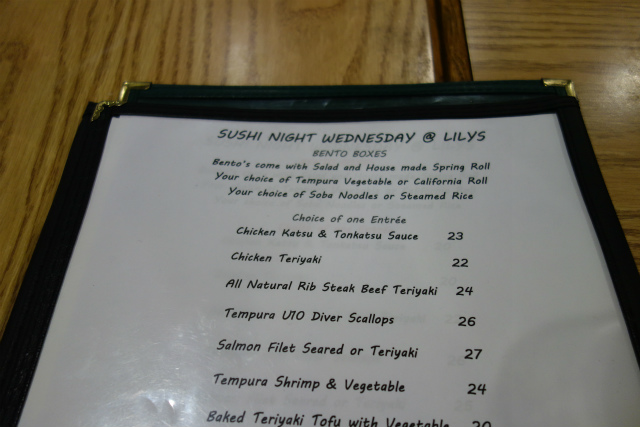 SUSHI NIGHT WEDNESDAY @ LILYS
BENTO BOXES
Bento's come with Salad and House made Spring Roll
Your choice of Tempura Vegetable or California Roll
Your choice of Soba Noodles or Steamed Rice
Choice of one Entrée
Chicken Katsu & Tonkatsu Sauce 23
Chicken Teriyaki 22
All Natural Rib Steak Beef Teriyaki 24
Tempura U10 Diver Scallops 26
Salmon Filet Seared or Teriyaki 27
Tempura Shrimp & Vegetable 24
Baked Teriyaki Tofu with Vegetable 20